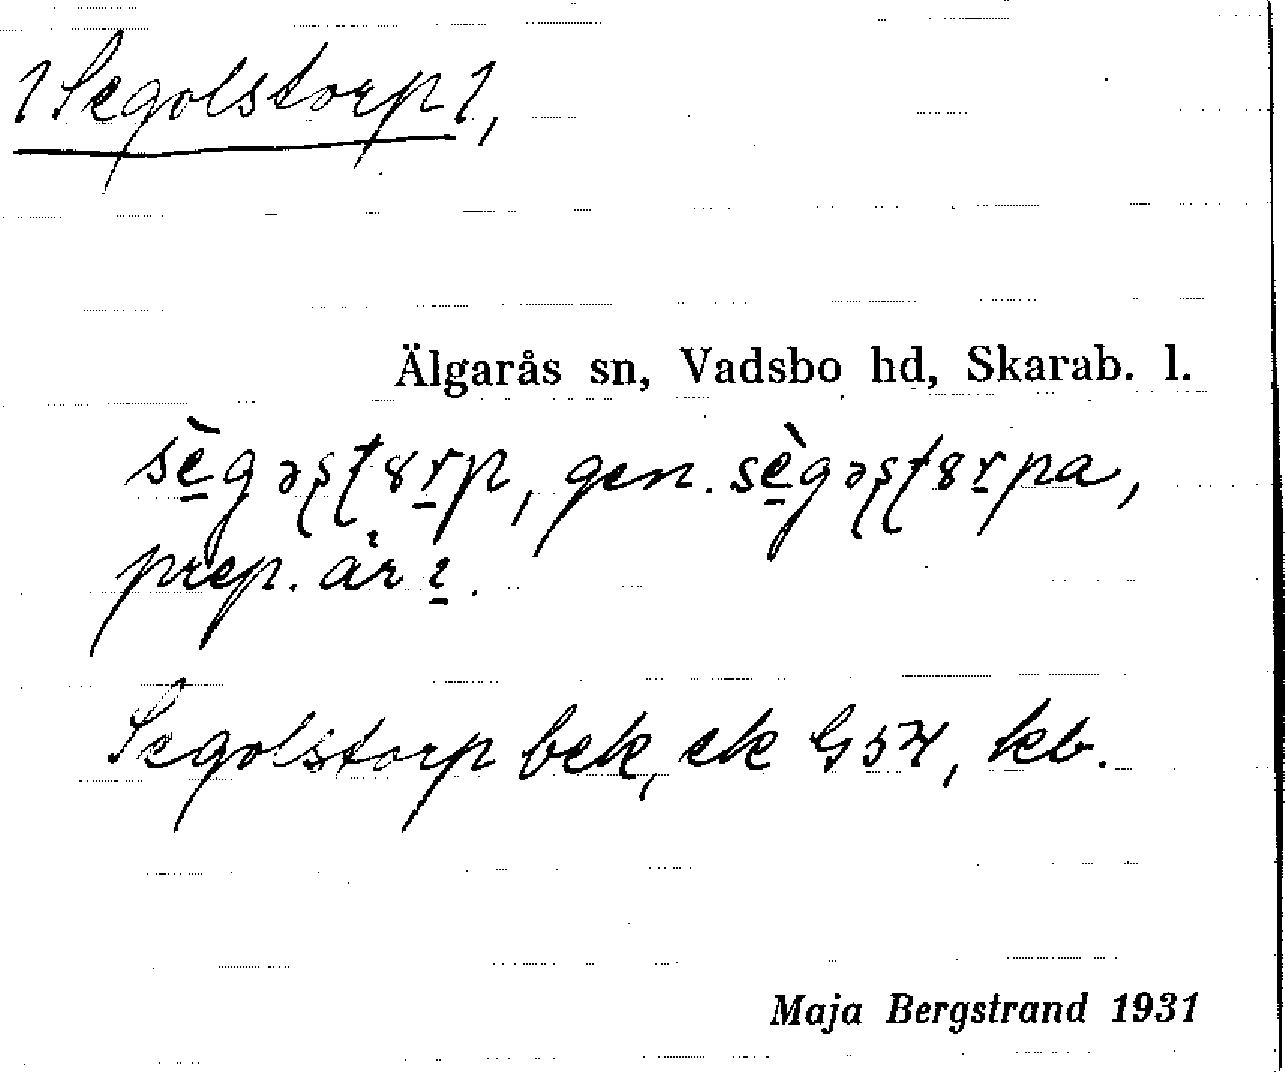 1 Segolstorp 1,
Älgarås sn, Vadsbo hd, Skarab. l.
sè̱gəʂʈ8ṟp, gen. sè̱gəʂʈ8ṟpa,
prep. är ı̱.
Segolstorp bek, ek G 54, kb.
Maja Bergstrand 1931